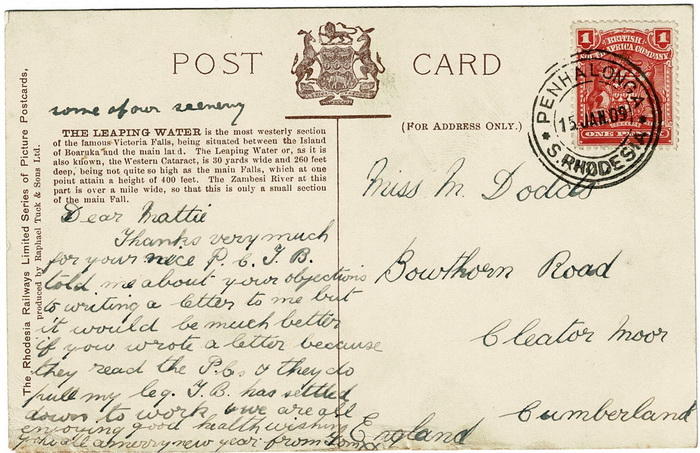 POST CARD
1 1
BRITISH
SOUTH AFRICA COMPANY
ONE PENNY
PENHALONGA
15 JAN 09
S. RHODESIA
some of our scenery
THE LEAPING WATER is the most westerly section
of the famous Victoria Falls, being situated between the Island
of Boaruka and the main land. The Leaping Water or, as it is
also known, the Western Cataract, is 30 yards wide and 260 feet
deep, being not quite so high as the main Falls, which at one
point attain a height of 400 feet. The Zambesi River at this
part is over a mile wide, so that this is only a small section
of the main Fall.
The Rhodesia Railways Limited Series of Picture Postcards,
produced by Raphael Tuck & Sons Ltd.
Dear Mattie
Thanks very much
for your nice P. C. J. B.
told me about your objections
to writing a letter to me but
it would be much better
if you wrote a letter because
they read the P.Cs & they do
pull my leg. J. B. has settled
down to work & we are all
enjoying good health wishing
you all a merry new year from Tom xx
(FOR ADDRESS ONLY.)
Miss M. Dodds
Bowthorn Road
Cleator Moor
Cumberland
England